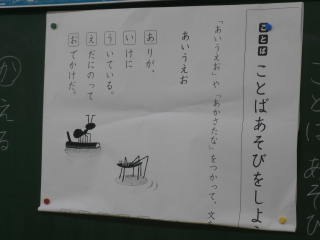 ことば
ことばあそびをしよ
「あいうえお」や「あかさたな」をつかって、文
あいうえお
ありが、
いけに
ういている。
えだにのって
おでかけだ。
ことばあそび
かえる